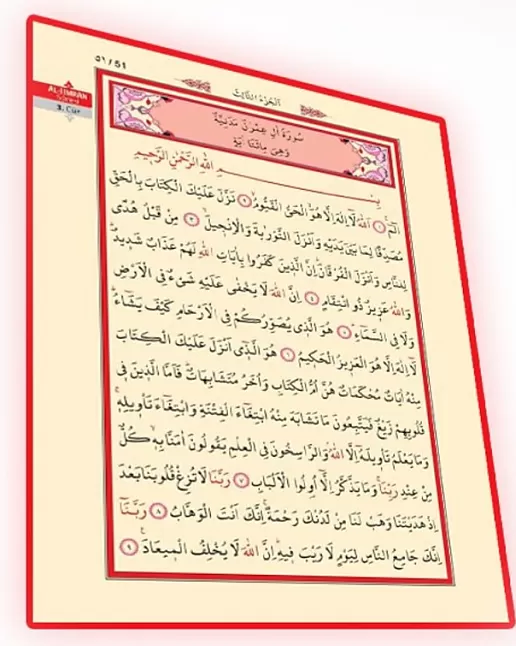 ٥١ / 51
اَلْجُزْءُ الثَّالِثُ
AL-İ İMRAN
3. Cüz
سُورَةُ اٰلِ عِمْرٰنَ مَدَنِيَّةٌ
وَهِىَ مِائَتَا اٰيَةٍ
بِسْمِ اللّٰهِ الرَّحْمٰنِ الرَّحِيمِ
الٓمٓ ١ اَللّٰهُ لَٓا اِلٰهَ اِلَّا هُوَ الْحَىُّ الْقَيُّومُ ٢ نَزَّلَ عَلَيْكَ الْكِتَابَ بِالْحَقِّ
مُصَدِّقًا لِمَا بَيْنَ يَدَيْهِ وَاَنْزَلَ التَّوْرٰيةَ وَالْاِنْجِيلَ ٣ مِنْ قَبْلُ هُدًى
لِلنَّاسِ وَاَنْزَلَ الْفُرْقَانَ اِنَّ الَّذِينَ كَفَرُوا بِاٰيَاتِ اللّٰهِ لَهُمْ عَذَابٌ شَدِيدٌ
وَاللّٰهُ عَزِيزٌ ذُو انْتِقَامٍ ٤ اِنَّ اللّٰهَ لَا يَخْفٰى عَلَيْهِ شَىْءٌ فِى الْاَرْضِ
وَلَا فِى السَّمَٓاءِ ٥ هُوَ الَّذِى يُصَوِّرُكُمْ فِى الْاَرْحَامِ كَيْفَ يَشَٓاءُ
لَٓا اِلٰهَ اِلَّا هُوَ الْعَزِيزُ الْحَكِيمُ ٦ هُوَ الَّذِٓى اَنْزَلَ عَلَيْكَ الْكِتَابَ
مِنْهُ اٰيَاتٌ مُحْكَمَاتٌ هُنَّ اُمُّ الْكِتَابِ وَاُخَرُ مُتَشَابِهَاتٌ فَاَمَّا الَّذِينَ فِى
قُلُوبِهِمْ زَيْغٌ فَيَتَّبِعُونَ مَا تَشَابَهَ مِنْهُ ابْتِغَٓاءَ الْفِتْنَةِ وَابْتِغَٓاءَ تَأْوِيلِهِ
وَمَا يَعْلَمُ تَأْوِيلَهُٓ اِلَّا اللّٰهُ وَالرَّاسِخُونَ فِى الْعِلْمِ يَقُولُونَ اٰمَنَّا بِهِ كُلٌّ
مِنْ عِنْدِ رَبِّنَا وَمَا يَذَّكَّرُ اِلَّٓا اُولُوا الْاَلْبَابِ ٧ رَبَّنَا لَا تُزِغْ قُلُوبَنَا بَعْدَ
اِذْ هَدَيْتَنَا وَهَبْ لَنَا مِنْ لَدُنْكَ رَحْمَةً اِنَّكَ اَنْتَ الْوَهَّابُ ٨ رَبَّنَٓا
اِنَّكَ جَامِعُ النَّاسِ لِيَوْمٍ لَا رَيْبَ فِيهِ اِنَّ اللّٰهَ لَا يُخْلِفُ الْمِيعَادَ ٩